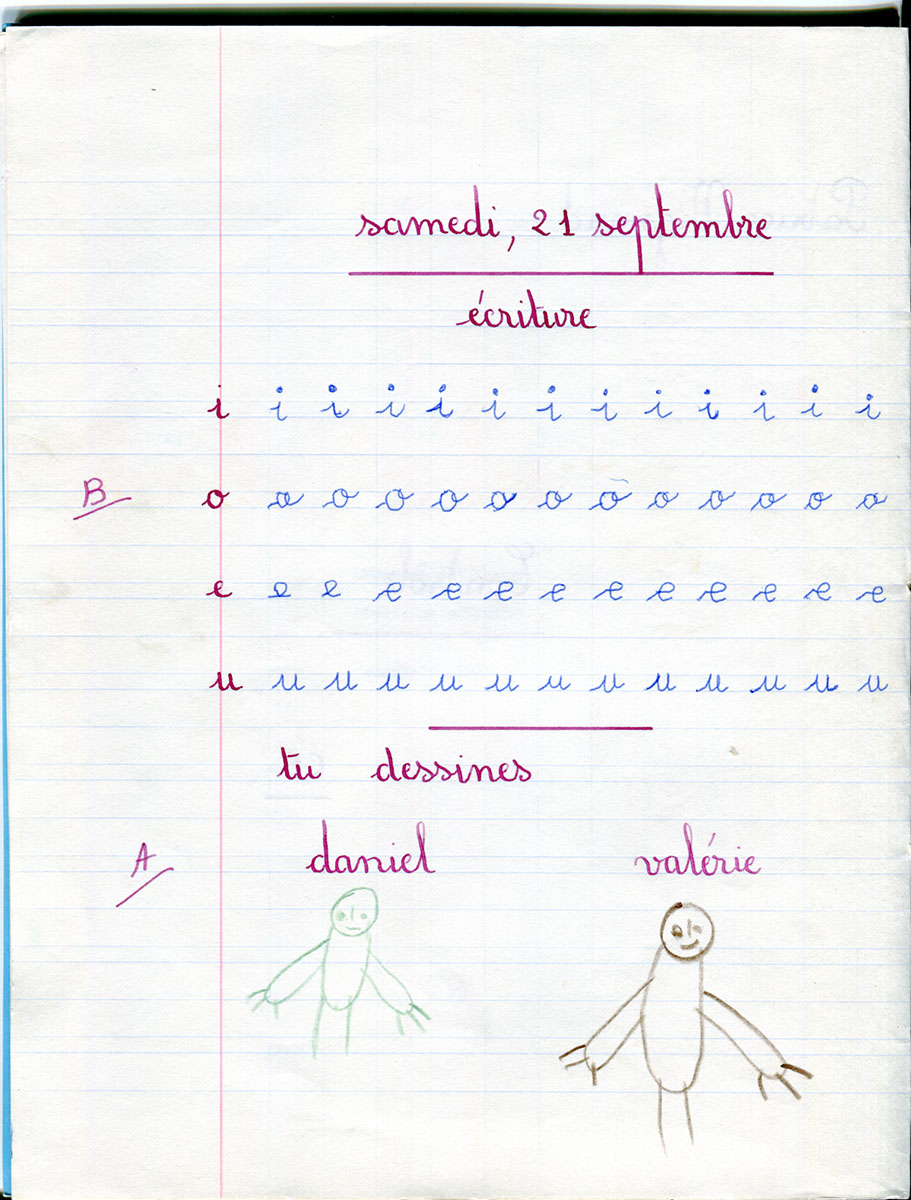 samedi, 21 septembre
écriture
i i i i i i i i i i i i i
B o o o o o o o o o o o o o
e e e e e e e e e e e e e
u u u u u u u u u u u u u
tu dessines
A daniel valérie